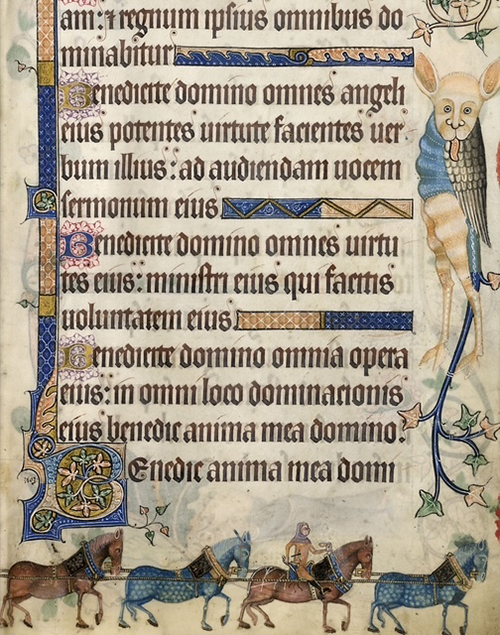 am: ⁊ regnum ipsius omnibus do
minabitur
Benedicite domino omnes angeli
eius potentes uirtute facientes uer
bum illius: ad audiendam uocem
sermonum eius
Benedicite domino omnes uirtu
tes eius: ministri eius qui facitis
uoluntatem eius
Benedicite domino omnia opera
eius: in omni loco dominacionis
eius benedic anima mea domino.
Benedic anima mea domi